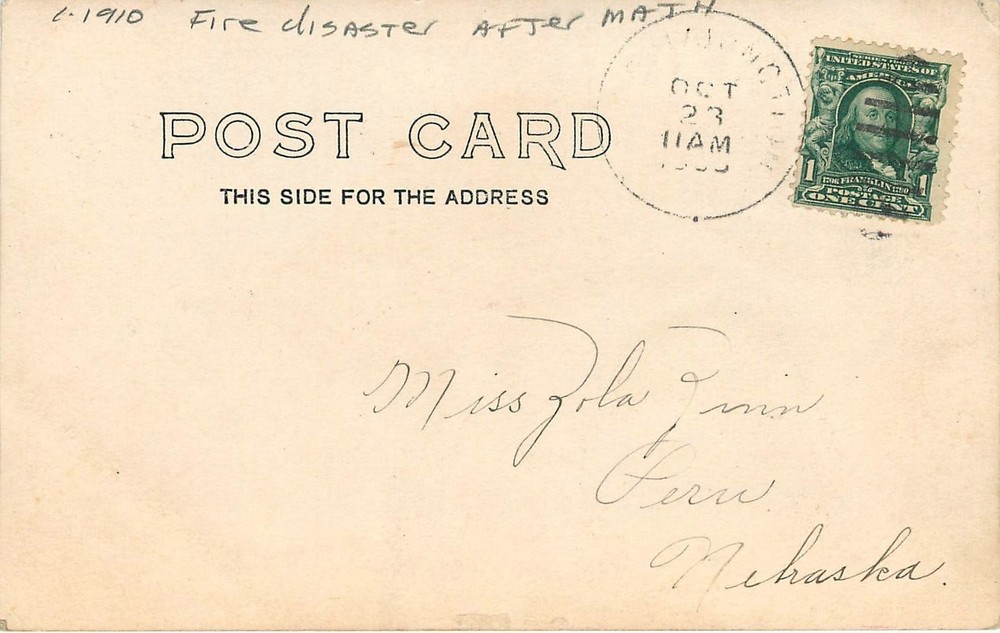 c. 1910 Fire disaster AFTer MATH
POST CARD
THIS SIDE FOR THE ADDRESS
OCT
23
11AM
SERIES 1902
UNITED STATES OF
AMERICA
1 1706 FRANKLIN 1790 1
POSTAGE
ONE CENT
Miss Zola
Peru
Nebraska.